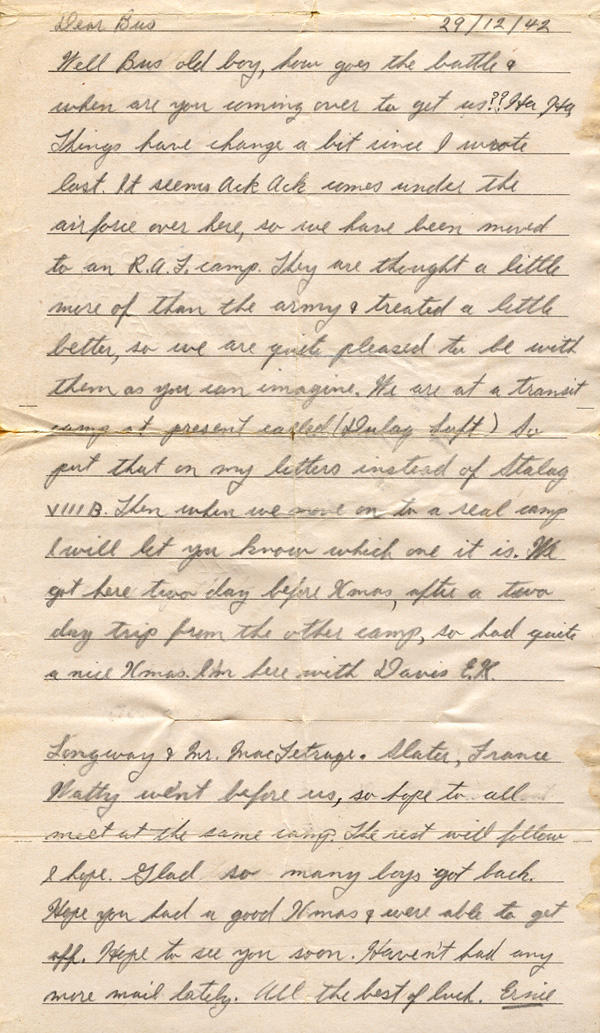 Dear Bus 29/12/42
Well Bus old boy, how goes the battle &
when are you coming over to get us?? Ha Ha
Things have change a bit since I wrote
last. It seems Ack Ack comes under the
airforce over here, so we have been moved
to an R.A.F. camp. They are thought a little
more of than the army & treated a little
better, so we are quite pleased to be with
them as you can imagine. We are at a transit
camp at present called (Dulag Luft) So
put that on my letters instead of Stalag
VIIIB. Then when we move on to a real camp
I will let you know which one it is. We
got here two day before Xmas, after a two
day trip from the other camp, so had quite
a nice Xmas. I'm here with Davis E.K.
Longway & Mr. Slater, France
Watty went before us, so hope to all
meet at the same camp. The rest will follow
I hope. Glad so many boys got back.
Hope you had a good Xmas & were able to get
off. Hope to see you soon. Haven't had any
more mail lately. All the best of luck. Ernie